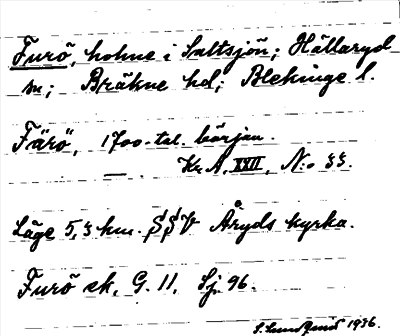 Furö, holme i Saltsjön; Hällaryd
sn; Bräkne hd; Blekinge l.
Färö, 1700-tal. början.
Kr. A. XXII, N:o 33.
Läge 5,3 km. SSV Åryds kyrka.
Furö sk, G. 11, Sj. 96.
1936.